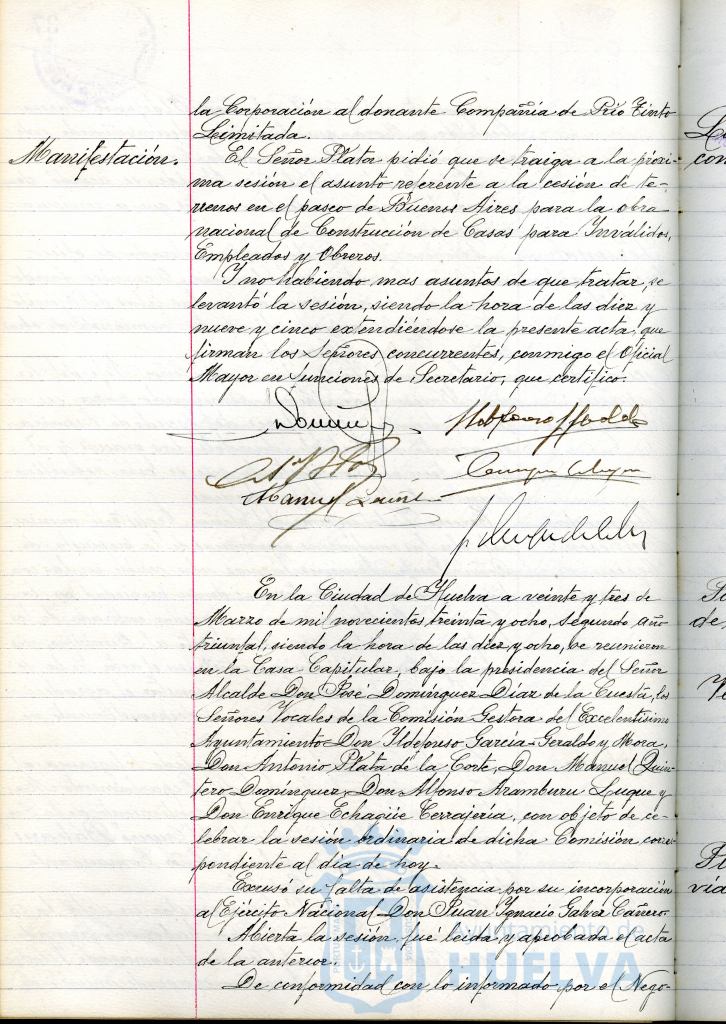 la Corporación al donante Compañia de Rio Tinto
Limitada.
Manifestación.
El Señor Plata pidió que se traiga a la próxi-
ma sesión el asunto referente a la cesión de te-
rrenos en el paseo de Buenos Aires para la obra
nacional de Construcción de Casas para Inválidos,
Empleados y Obreros.
Y no habiendo mas asuntos de que tratar, se
levantó la sesión, siendo la hora de las diez y
nueve y cinco extendiéndose la presente acta, que
firman los Señores concurrentes, conmigo el Oficial
Mayor en funciones de Secretario, que certifico.
Manuel
En la Ciudad de Huelva a veinte y tres de
Marzo de mil novecientos treinta y ocho, segundo año
triunfal, siendo la hora de las diez y ocho, se reunieron
en la Casa Capitular, bajo la presidencia del Señor
Alcalde Don José Domínguez Diaz de la Cuesta, los
Señores Vocales de la Comisión Gestora del Excelentísimo
Ayuntamiento Don Ildefonso García-Geraldo y Mora,
Don Antonio Plata de la Corte, Don Manuel Quin-
tero Domínguez, Don Alfonso Aramburu Luque y
Don Enrique Echagüe Cerrajería, con objeto de ce-
lebrar la sesión ordinaria de dicha Comisión, corres-
pondiente al día de hoy.
Excusó su falta de asistencia por su incorporación
al Ejército Nacional Don Juan Ignacio Galvez Cañero.
Abierta la sesión, fué leida y aprobada el acta
de la anterior.
De conformidad con lo informado por el Nego-
Ayuntamiento de
HUELVA